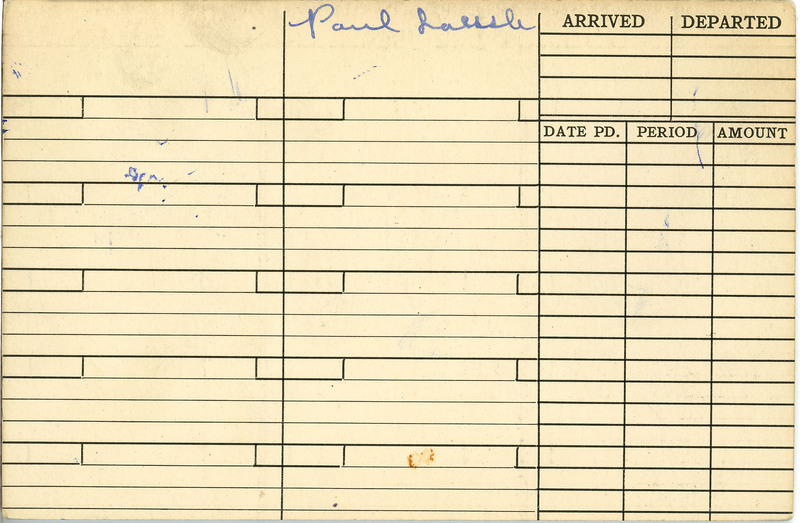 Paul
ARRIVED DEPARTED
DATE PD. PERIOD AMOUNT